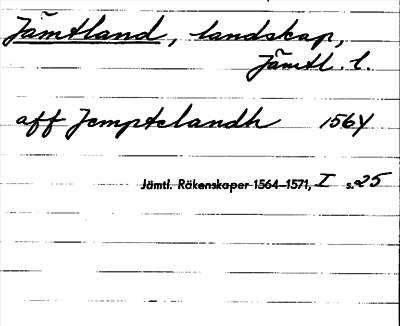 Jämtland, landskap,
Jämtl. l.
aff Jemptelandh 1564
Jämtl. Räkenskaper 1564–1571, I s. 25